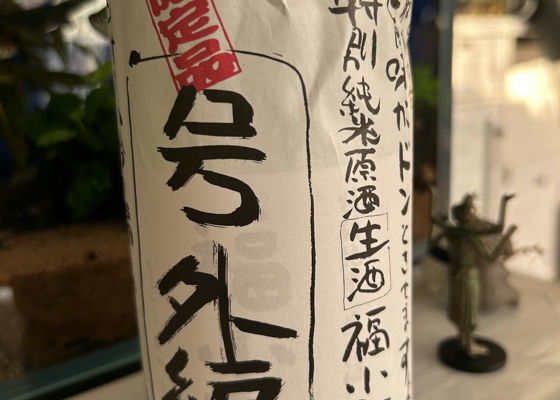 味がドンときてます
特別純米原酒生酒 福小
限定品
号外